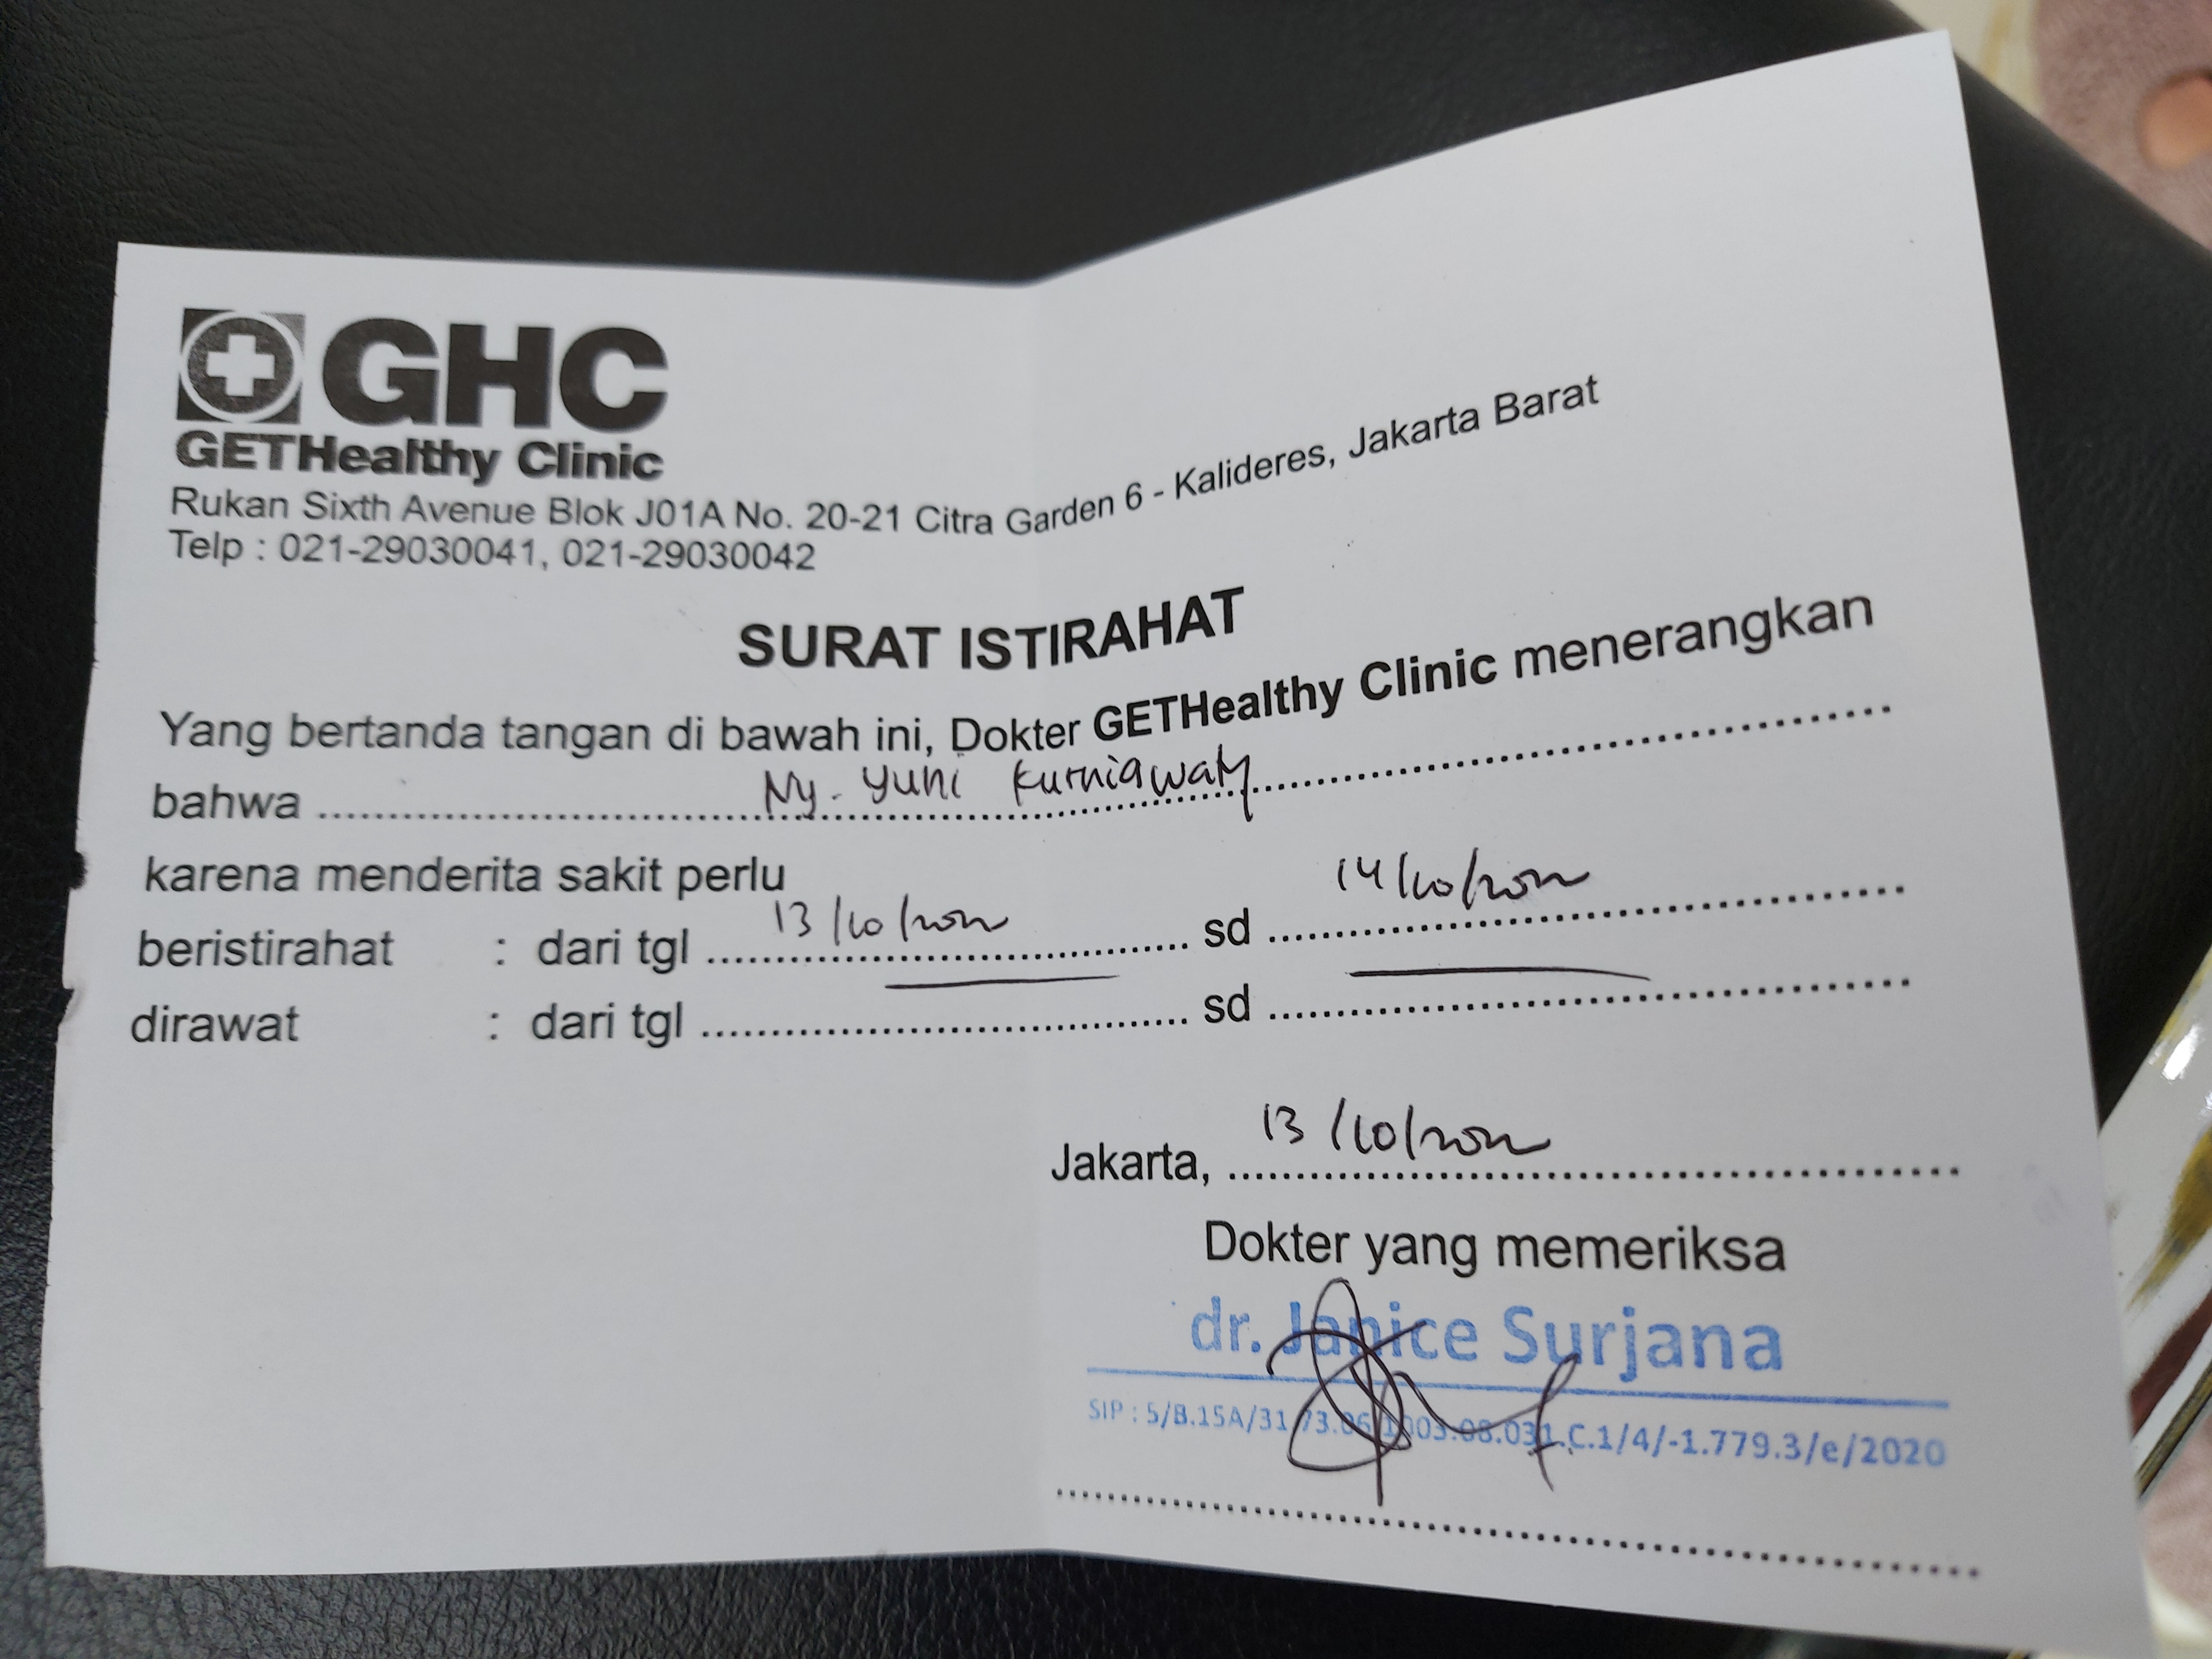 GHC
GETHealthy Clinic
Rukan Sixth Avenue Blok J01A No. 20-21 Citra Garden 6 - Kalideres, Jakarta Barat
Telp : 021-29030041, 021-29030042
SURAT ISTIRAHAT
Yang bertanda tangan di bawah ini, Dokter GETHealthy Clinic menerangkan
bahwa Ny. Yuni Kurniawam
karena menderita sakit perlu
beristirahat : dari tgl 13/10/ sd 14/10/
dirawat : dari tgl sd
Jakarta, 13/10/
Dokter yang memeriksa
dr. Janice Surjana
SIP : 5/B.15A/31 C.1/4/-1.779.3/e/2020